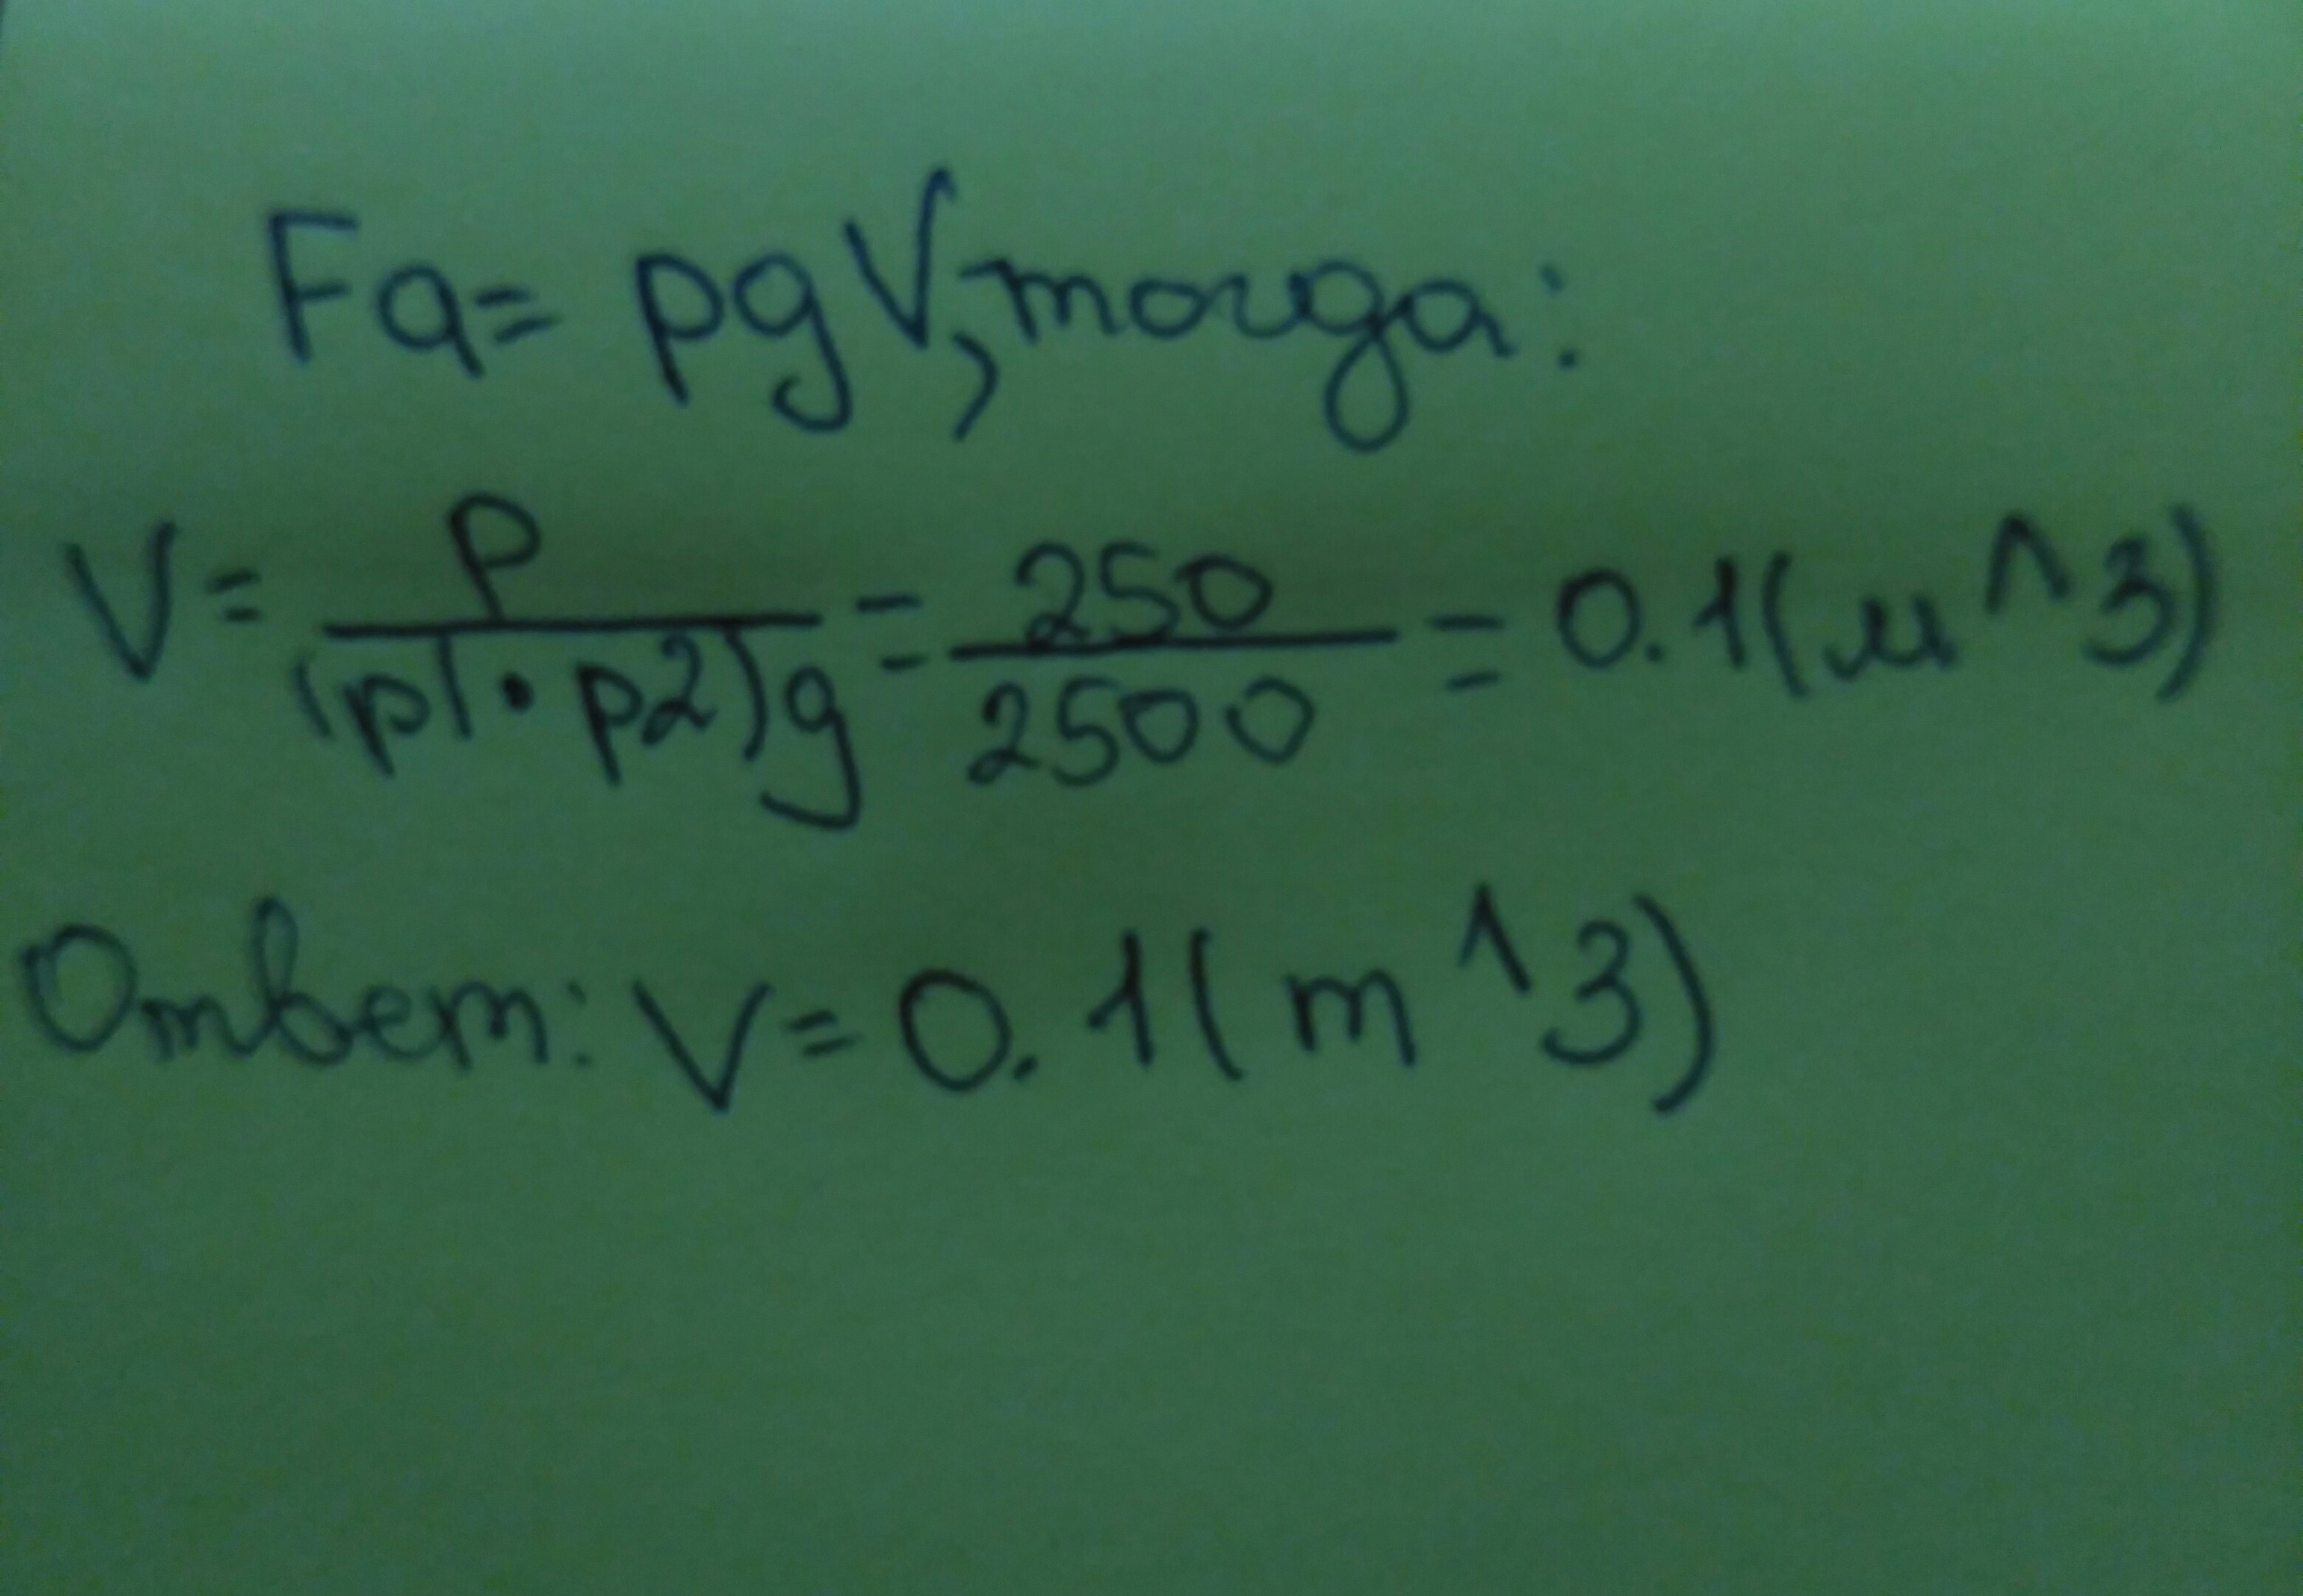 Fa = pgV, тогда:
V = p / (p1 · p2)g = 250 / 2500 = 0.1 (м^3)
Ответ: V = 0.1 (m^3)